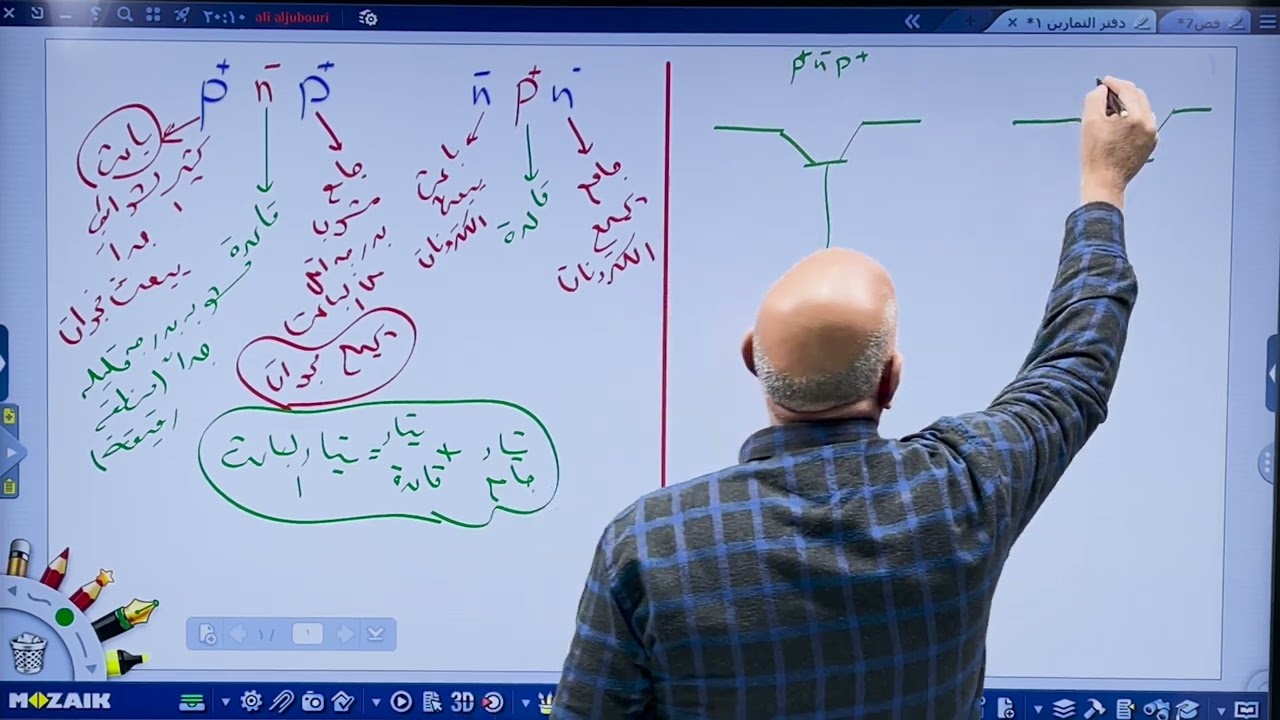 ali aljubouri
٢٠:١٠
دفتر التمارين ١*
فص7*
p⁺ n⁻ p⁺
n⁻ p⁺ n⁻
p⁺ n⁻ p⁺
باعث
كثير الشوائب
جداً
يبعث فجوات
قاعدة
مشوب بدرجة قليلة
جداً (منطقة
جامع
مشوب
بدرجة اقل
من الباعث
تجميع فجوات
باعث
يبعث
الكترونات
قاعدة
جامع
تجميع
الكترونات
تيار جامع + تيار قاعدة = تيار الباعث
١ /
١
MOZAIK
3D